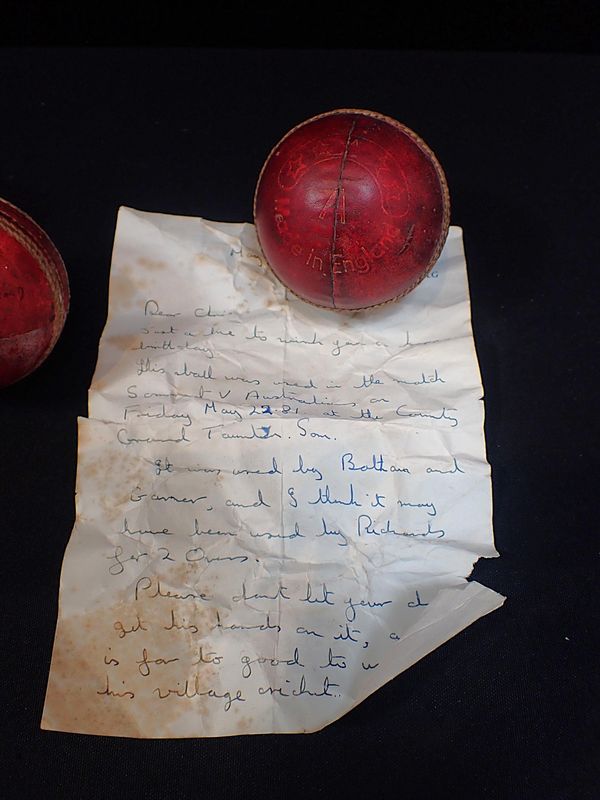 71
Made in England
Dear
Just a line to wish you a
birthday.
This ball was used in the match
Somerset V Australians on
Friday May 22.81 at the County
Ground Taunton. Som.
It was used by Botham and
Garner, and I think it may
have been used by Richards
for 2 Overs.
Please dont let your d
get his hands on it, a
is far to good to u
his village cricket.